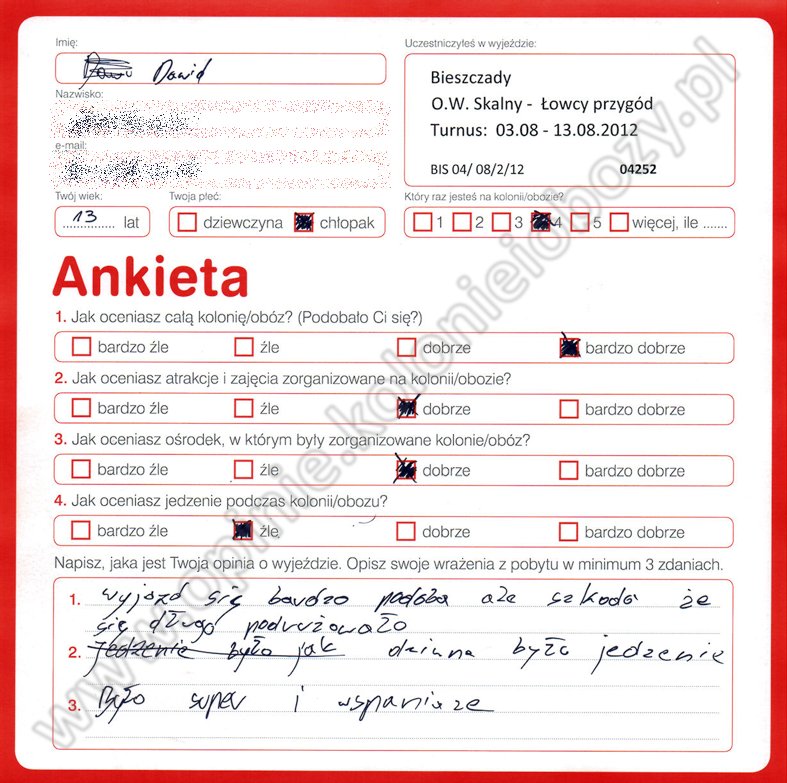 Imię:
Dawid
Uczestniczyłeś w wyjeździe:
Bieszczady
O.W. Skalny - Łowcy przygód
Turnus: 03.08 - 13.08.2012
BIS 04/ 08/2/12 04252
Nazwisko:
e-mail:
Twój wiek:
13 lat
Twoja płeć:
dziewczyna chłopak
Który raz jesteś na kolonii/obozie?
1 2 3 4 5 więcej, ile .......
Ankieta
1. Jak oceniasz całą kolonię/obóz? (Podobało Ci się?)
bardzo źle źle dobrze bardzo dobrze
2. Jak oceniasz atrakcje i zajęcia zorganizowane na kolonii/obozie?
bardzo źle źle dobrze bardzo dobrze
3. Jak oceniasz ośrodek, w którym były zorganizowane kolonie/obóz?
bardzo źle źle dobrze bardzo dobrze
4. Jak oceniasz jedzenie podczas kolonii/obozu?
bardzo źle źle dobrze bardzo dobrze
Napisz, jaka jest Twoja opinia o wyjeździe. Opisz swoje wrażenia z pobytu w minimum 3 zdaniach.
1. wyjazd się bardzo podoba ale szkoda że
się długo podrużowało
2. jedzenie było jak dziwne było jedzenie
3. Było super i wspaniale
www.opinie.kolonieiobozy.pl